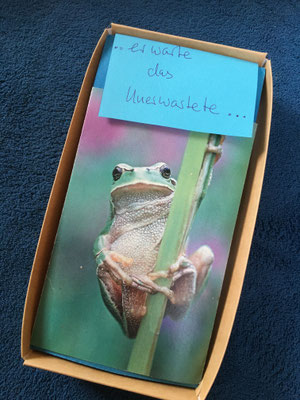 ..erwarte
das
Unerwartete...